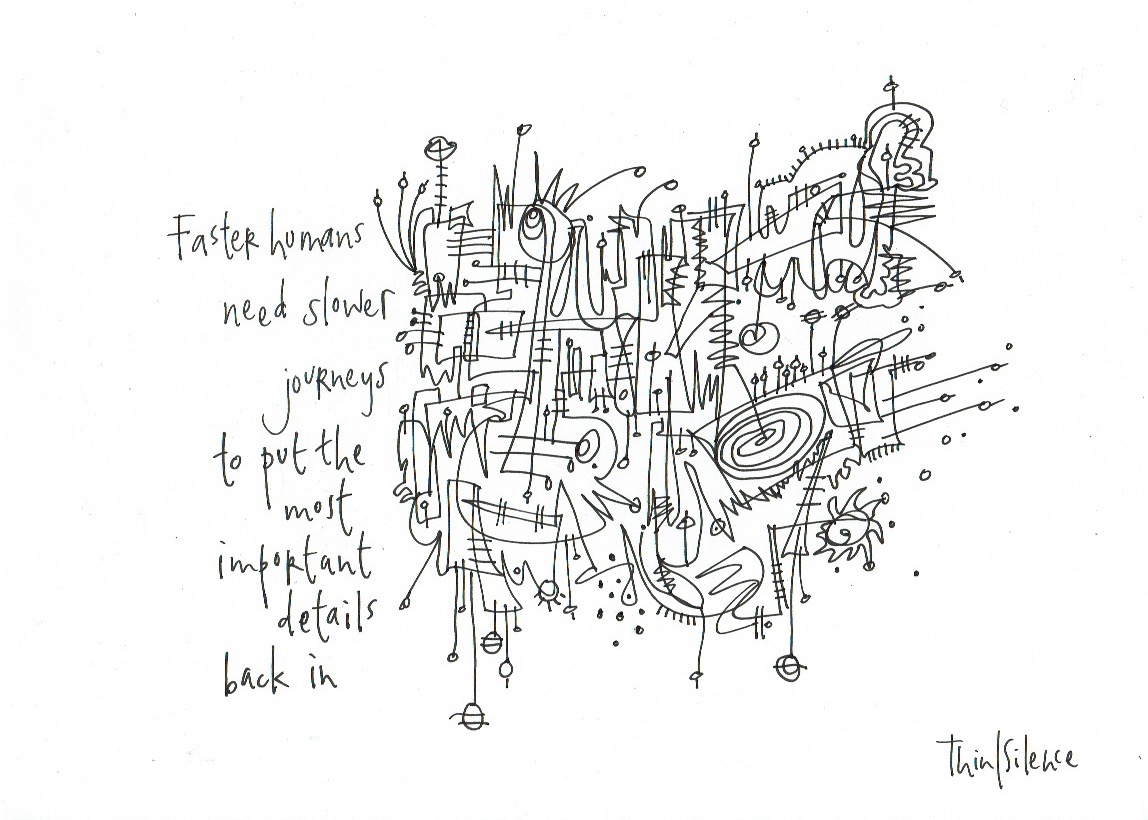 Faster humans
need slower
journeys
to put the
most
important
details
back in
Thin/Silence